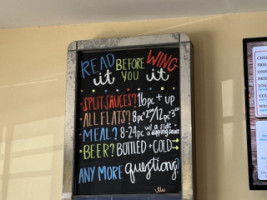 READ BEFORE WING
it YOU it
SPLIT SAUCES? 16pc + up
ALL FLATS? 8pc 2⁰⁰/12pc 3⁰⁰
MEAL? 8-24pc w/ a side
BEER? BOTTLED + COLD
ANY MORE questions?